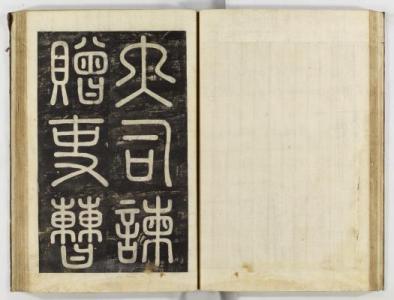 大司諫
贈吏曹